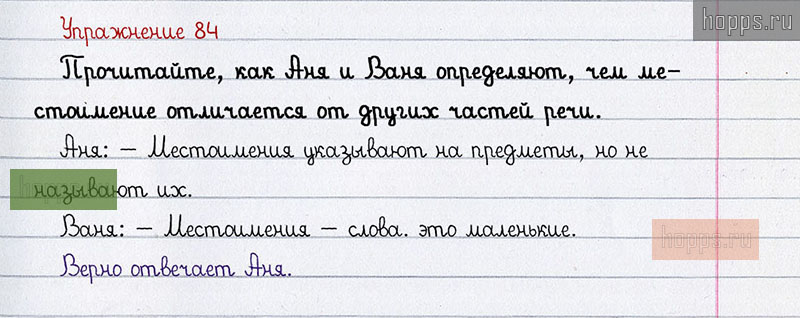 hopps.ru
Упражнение 84
Прочитайте, как Аня и Ваня определяют, чем ме-
стоимение отличается от других частей речи.
Аня: – Местоимения указывают на предметы, но не
называют их.
Ваня: – Местоимения – слова. это маленькие.
hopps.ru
Верно отвечает Аня.